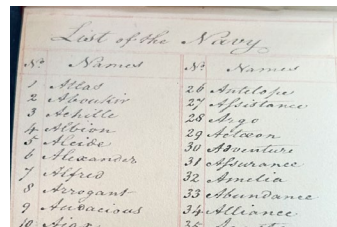 List of the Navy
No Names No Names
1 Atlas 26 Antelope
2 Aboukir 27 Assistance
3 Achille 28 Argo
4 Albion 29 Acteon
5 Alcide 30 Adventure
6 Alexander 31 Assurance
7 Alfred 32 Amelia
8 Arrogant 33 Abundance
9 Audacious 34 Alliance
10 Ajax 35